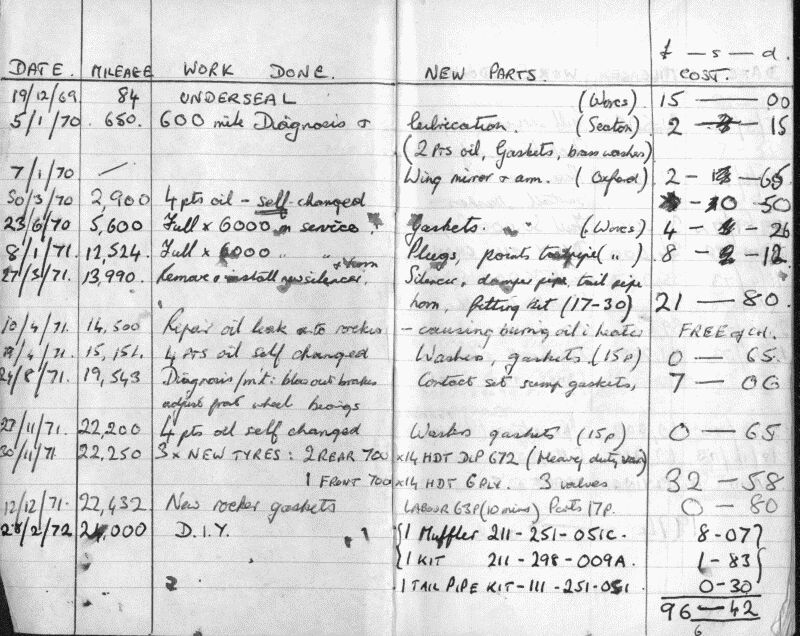 £ — s — d.
DATE. MILEAGE WORK DONE. NEW PARTS. COST.
19/12/69 84 UNDERSEAL (Worcs) 15 — 00
5/1/70 650. 600 mile Diagnosis + lubrication. (Seaton) 2 — 15
(2 pts oil, Gaskets, brass washers)
7/1/70 — Wing mirror + arm. (Oxford) 2 — 65
30/3/70 2,900 4 pts oil - self changed 50
23/6/70 5,600 Full x 6000 m service gaskets. (Worcs) 4 — 26
8/1/71. 12,524 Full x 6000 " " Plugs, points (") 8 — 12
27/3/71. 13,990. Remove + install new silencer, + horn Silencer, damper pipe, tail pipe
horn, fitting kit (17-30) 21 — 80.
10/4/71. 14,500 Repair oil leak onto rocker - causing burning oil i heater FREE of CH.
/4/71. 15,151. 4 pts oil self changed Washers, gaskets. (15p) 0 — 65.
24/8/71. 19,543 Diagnosis/mt: blow out brakes Contact set sump gaskets, 7 — 00
adjust front wheel bearings
27/11/71. 22,200 4 pts oil self changed Washers gaskets (15p) 0 — 65
30/11/71. 22,250 3 x NEW TYRES: 2 REAR 700 x 14 HDT DLP G72 (Heavy duty van)
1 FRONT 700 x 14 HDT 6 PLY. 3 valves 32 — 58
12/12/71. 22,432 New rocker gaskets LABOUR 63P (10 mins) Parts 17P. 0 — 80
28/2/72 24,000 D.I.Y. 1 Muffler 211-251-051C. 8-07
1 KIT 211-298-009A. 1-83
1 TAIL PIPE KIT-111-251-051 0-30
96 — 42
6